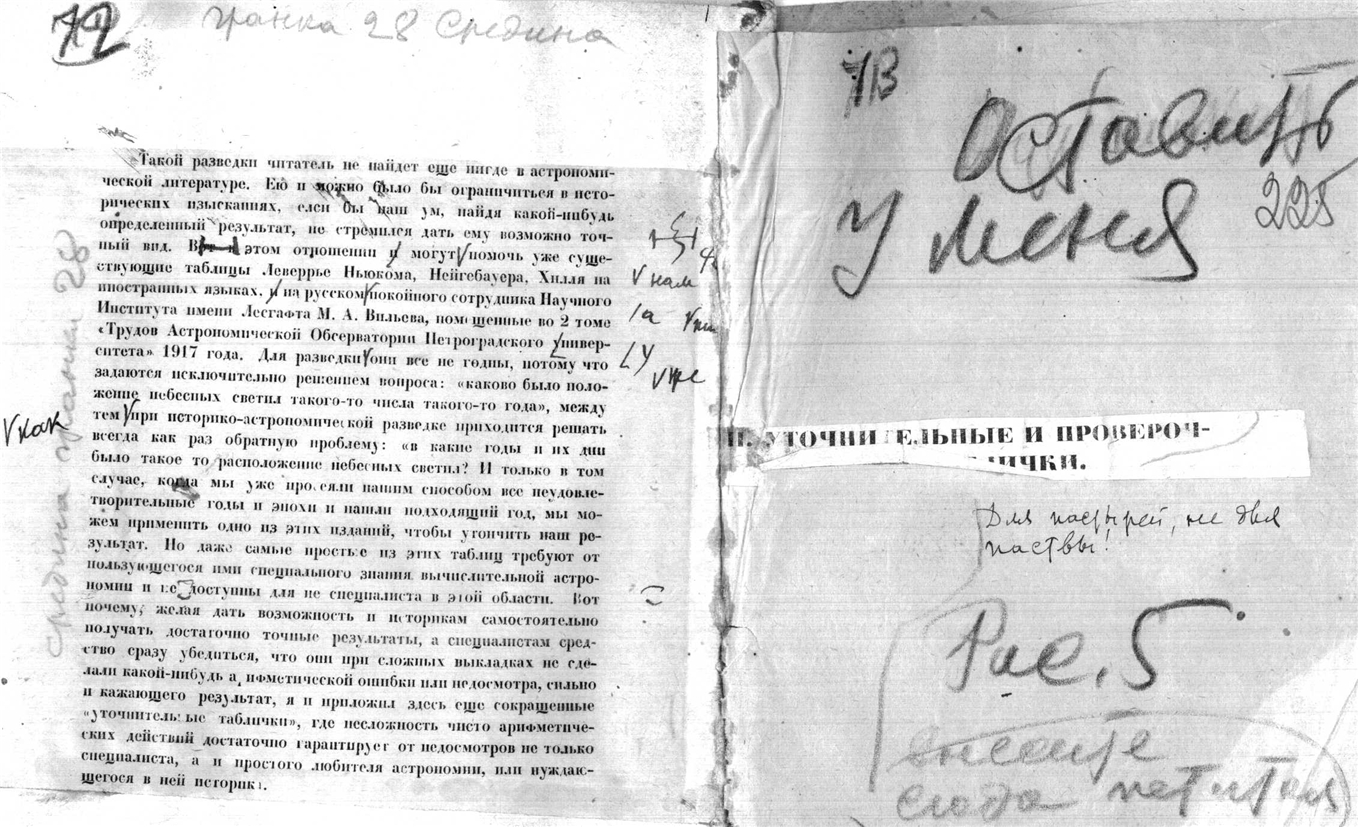 72
гранка 28 Средина
Такой разведки читатель не найдет еще нигде в астрономи-
ческой литературе. Ею и можно было бы ограничиться в исто-
рических изысканиях, елси бы наш ум, найдя какой-нибудь
определенный результат, не стремился дать ему возможно точ-
ный вид. В этом отношении и могут помочь уже суще-
ствующие таблицы Леверрье Ньюкома, Нейгебауера, Хилля на
иностранных языках, и на русском покойного сотрудника Научного
Института имени Лесгафта М. А. Вильева, помещенные во 2 томе
«Трудов Астрономической Обсерватории Петроградского Универ-
ситета» 1917 года. Для разведки они все не годны, потому что
задаются исключительно решением вопроса: «каково было поло-
жение небесных светил такого-то числа такого-то года», между
тем при историко-астрономической разведке приходится решать
всегда как раз обратную проблему: «в какие годы и их дни
было такое то расположение небесных светил? И только в том
случае, когда мы уже просеяли нашим способом все неудовле-
творительные годы и эпохи и нашли подходящий год, мы мо-
жем применить одно из этих изданий, чтобы уточнить наш ре-
зультат. Но даже самые простые из этих таблиц требуют от
пользующегося ими специального знания вычислительной астро-
номии и не доступны для не специалиста в этой области. Вот
почему, желая дать возможность и историкам самостоятельно
получать достаточно точные результаты, а специалистам сред-
ство сразу убедиться, что они при сложных выкладках не сде-
лали какой-нибудь арифметической ошибки или недосмотра, сильно
искажающего результат, я и приложил здесь еще сокращенные
«уточнительные таблички», где несложность чисто арифметиче-
ских действий достаточно гарантирует от недосмотров не только
специалиста, а и простого любителя астрономии, или нуждаю-
щегося в ней историка.
Vкак
V нам
/а
V же
средина гранки 28
73
Оставить
у меня
225
II. УТОЧНИТЕЛЬНЫЕ И ПРОВЕРОЧ-
ЛИЧКИ.
Для пастырей, не для
паствы!
Рис. 5
внесите
сюда петитом